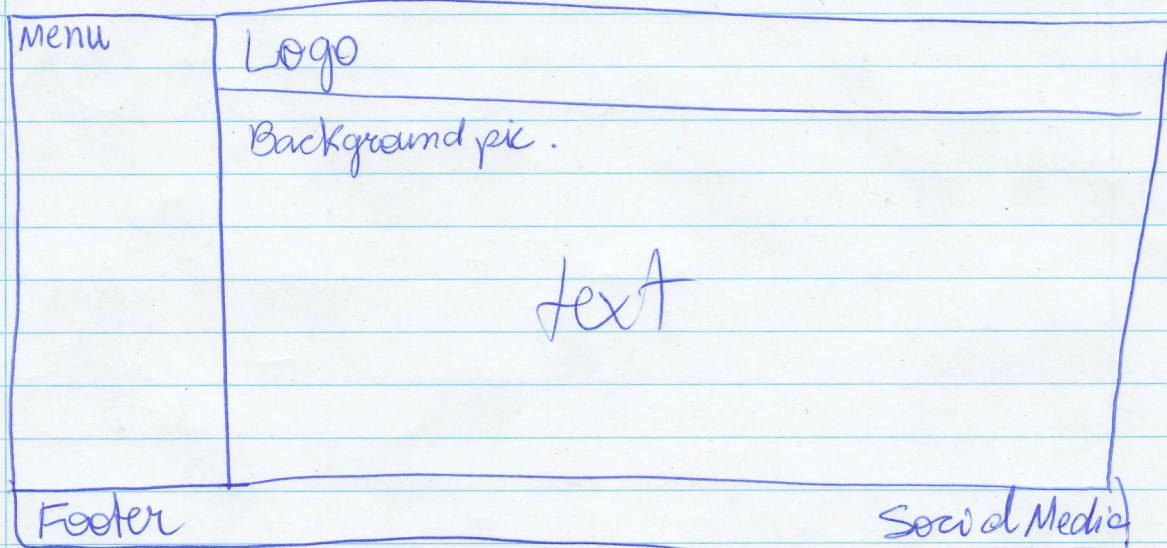 Menu
Logo
Background pic.
text
Footer
Social Media